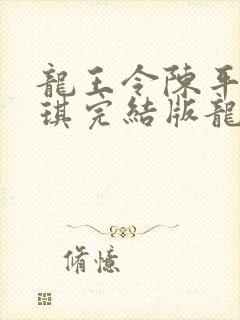 龍王令陳平
琪完結版龍
脩憶